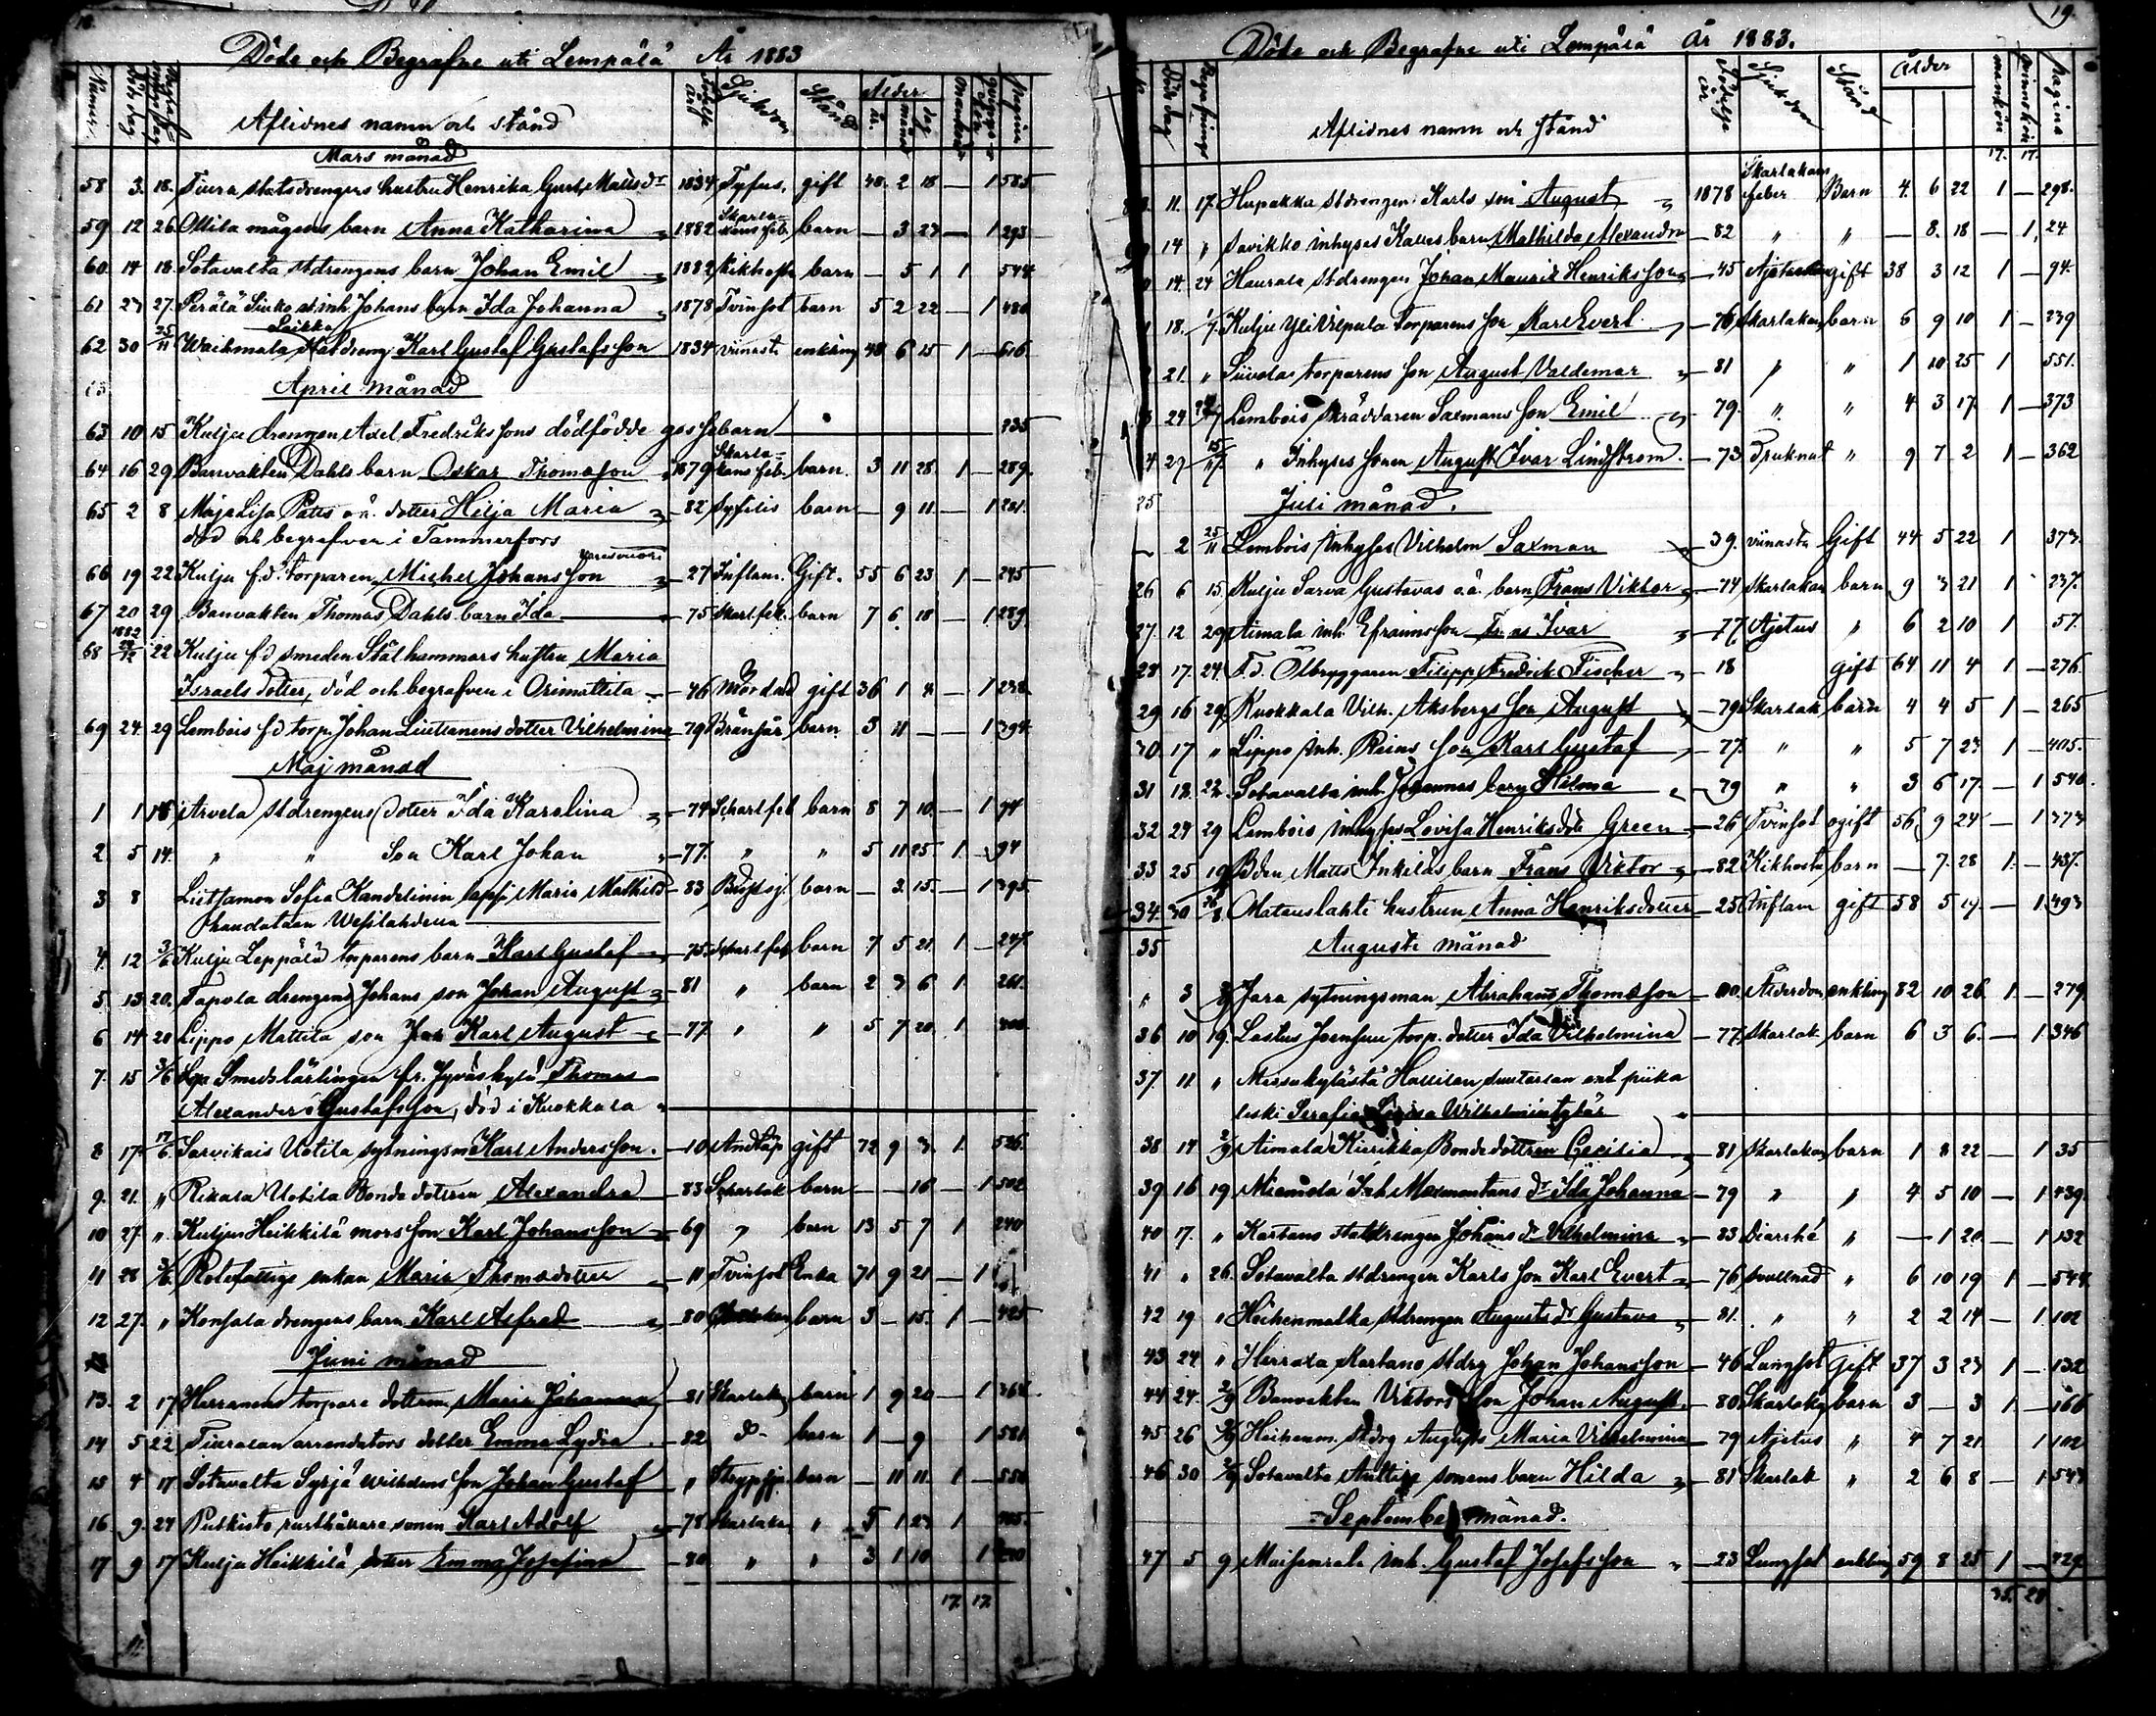 18.
Döde och Begrafne uti Lempälä År 1883
Aflidnes namn och stånd Sjukdom Stånd Ålder Pagina
Mars månad
58 3. 18. Tiura statsdrengens hustru Henrika Gust. Mattsdr 1834 Tyfus. gift 48. 2 18 — 1 585
59 12 26 Ollila mågens barn Anna Katharina 1882 Skarlakans feb. barn — 3 23 — 1 293
60 14 18. Sotavalta stdrengens barn Johan Emil 1882 Kikhosta barn — 5 1 1 544
61 23 27. Perälä inh Johans barn Ida Johanna 1878 Tvinsot barn 5 2 22 — 1 480
62 30 25/11 Statdreng Karl Gustaf Gustafsson 1834 viinasta enkling 48 6 15 1 — 616
April månad
63 10 15 Kulju drengen Axel Fredrikssons dödfödde gossebarn 235
64 16 29 Banvakten Dahls barn Oskar Thomasson 1879 Skarlakans feb. barn. 3 11 28. 1 — 289.
65 2 8 Maja Lisa Patts o.ä. dotter Hilja Maria 82 Syfilis barn — 9 11. — 1 201.
död och begrafven i Tammerfors
66 19 22 Kulju f.d. torparen Michel Johansson 27 Inflam. Gift. 55 6 23 1 — 245
67 20 29 Banvakten Thomas Dahls barn Ida 75 Skarl feb. barn 7 6. 18 — 1 289
68 1882 22 Kulju f.d smeden Stålhammars hustru Maria
Israels dotter, död och begrafven i Orimattila 46 Mördad gift 36 1 4. — 1 238
69 24. 29 Lembois f.d torp. Johan Liutianens dotter Vilhelmina 79 Brånsår barn 3 11 — — 1 394
Maj månad
1 1 18 Arvela stdrengens dotter Ida Karolina 74 Scharl feb barn 8 7 10. — 1 94
2. 5 14. " " Son Karl Johan 77. " " 5 11 25. 1. 94
3 8 Liutjamon Sofia Kandelinin lapsi Maria Mathild 83 barn — 3. 15. — 1 395.
haudataan Wesilahdella
4. 12 3/6 Kulju Leppälä torparens barn Karl Gustaf 75. Skarl feb barn 7 5 21. 1. — 247.
5. 13 20. Tapola drengens Johans son Johan August 81 " barn 2 3 6 1 261.
6 14 20 Lippo Mattila son Karl August 77. " " 5 7 20. 1
7. 15 3/6 Smedslärlingen fr. Jyväskylä Thomas
Alexander Gustafsson, död i Kuokkala
8 17. 17/6. Sarvikais Uotila sytningsm Karl Andersson. 10 Andtäp gift 72 9 3. 1. 526.
9. 21. " Rikala Uotila Bonde dottren Alexandra 83 Scharlak barn — — 16 — 1 502
10 27. " Kuljun Heikkilä mors son Karl Johansson 69 " barn 13 5 7 1 240
11 28 3/6 Rotefattige enkan Maria Thomasdotter 11 Tvinsot Enka 71 9 21 — 1
12 27. " Konsala drengens barn Karl Alfred 80 barn 3 — 15. 1 — 425
Juni månad
13. 2 17 Herranens torpare dottren Maria Johanna 81 Skarlakan barn 1 9 20 — 1
14 5 22 Tiuralan arrendators dotter Emma Lydia 82 d- barn 1 — 9 1 581
15 4 17 Sotavalta Syrjä Wilhelms son Johan Gustaf " Strypsju. barn — 11 11. 1 — 550
16 9. 24 Putkisto rusthållare sonen Karl Adolf 78 Skarlakan " 5 1 23 1
17 9 17 Kulju Heikkilä dotter Emma Josefina 80 " " 3 1 10 1
17. 17.
19.
Döde och Begrafne uti Lempälä År 1883.
Aflidnes namn och stånd Födelse år Sjukdom Stånd Ålder mankön qvinnokön Pagina
17. 17.
11. 17. Hupakka stdrengen Karls son August 1878 Skarlakans feber Barn 4. 6 22 1 — 298.
14 " Savikko inhyses Kalles barn Mathilda Alexandra 82 " " — 8. 18 — 1. 24
14. 24 Haurala stdrengen Johan Maurits Henriksson 45 gift 38 3 12 1 — 94.
18. 1/7. Kulju Yli Vilpula torparens son Karl Evert 76 Skarlakan barn 6 9 10 1 — 239
21. " Siivola torparens son August Valdemar 81 " " 1 10 25 1 551.
24 Lembois skräddaren Saxmans son Emil 79. " " 4 3 17. 1 — 373
27 15/7 " Inhyses sonen August Ivar Lindström. 73 Druknat " 9 7 2 1 — 362
25 Juli månad.
2 25/11 Lembois inhyses Vilhelm Saxman 39. viinasta Gift 44 5 22 1 373.
26 6 15. Kulju Sarva Gustavas o.ä. barn Frans Viktor 74 Skarlakan barn 9 3 21 1 237.
27. 12 29 Aimala inh. Efraimsson Ivar 77. Ajetus " 6 2 10 1 57.
28 17. 24. F.d. Ölbryggaren Filipp Fredrik Fischer 18 gift 64 11 4 1 — 276.
29 16 29. Kuokkala Vilh. Aksbergs son August 79 Skarlak barn 4 4 5 1 — 265
30 17 " Lippo inh. Reins son Karl Gustaf 77. " " 5 7 23 1 — 405.
31 18. 22. Sotavalta inh. Johannes barn Hilma 79 " " 3 6 17. — 1 540.
32 24 29 Lembois inhyses Lovisa Henriksdr Green 26 Tvinsot ogift 56 9 24 — 1 373
33 25 19 Bden Matts Inkiläs barn Frans Victor 82 Kikhosta barn — 7. 28 1. — 437.
34. 30 26/8. Matauslahti hustrun Anna Henriksdotter 25 Inflam gift 58 5 17. — 1. 493
35 Augusti månad
" 3 Jara sytningsman Abrahams Thomasson 00. Ålderdom enkling 82 10 26 1. — 279.
36 10 19. Lastus Joensuu torp. dotter Ida Vilhelmina 77. Skarlak barn 6 3 6. — 1 346
37 11 " Messukylästä Hallilan suutarlan ent. piika
leski Serafia Wilhelmiina tytär
38 14 2/9 Aimala Kiirikka Bondedottren Cecilia 81 Skarlakan barn 1 8 22 — 1 35
39 16 19 Miemola Inh Maxmontans dr Ida Johanna 79 " " 4 5 10 — 1. 439.
40 17. " Kartano statdrengen Johans dr Vilhelmina 83 Diarrhé " — 1 20. — 1 132
41 " 26. Sotavalta stdrengen Karls son Karl Evert 76 svullnad " 6 10 19 1 — 544.
42 19 " Hoikenmalka stdrengen Augusts dr Gustava 81. " " 2 2 14 — 1 102
43 24 " Herrala Kartano stdrg Johan Johansson 46 Lungsot Gift 37 3 23 1 — 132
44 24. 2/9 Banvakten Viktors son Johan August 80 Skarlakan barn 3 — 3 1 — 166
45 26 stdrg Augusts Maria Vilhelmina 79 Ajetus " 4 7 21 1 102
46 30 2/9 Sotavalta Anttila sonens barn Hilda 81 Skarlak " 2 6 8 — 1 543
September månad.
47 5 9 Moisenrala inh. Gustaf Josefsson 23 Lungsot enkling 59 8 25 1 — 429.
35. 28